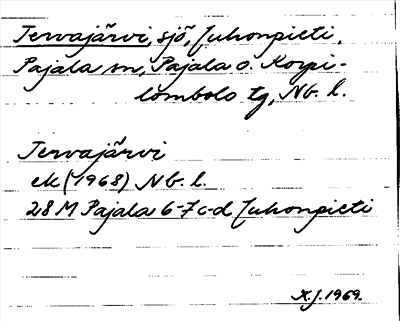 Tervajärvi, sjö, Juhonpieti,
Pajala sn, Pajala o. Korpi-
lombolo tg, Nb. l.
Tervajärvi
ek (1968) Nb. l.
28 M Pajala 6-7 c-d Juhonpieti
K.J. 1969.